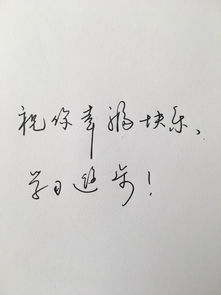 祝你幸福快乐、
学习进步！